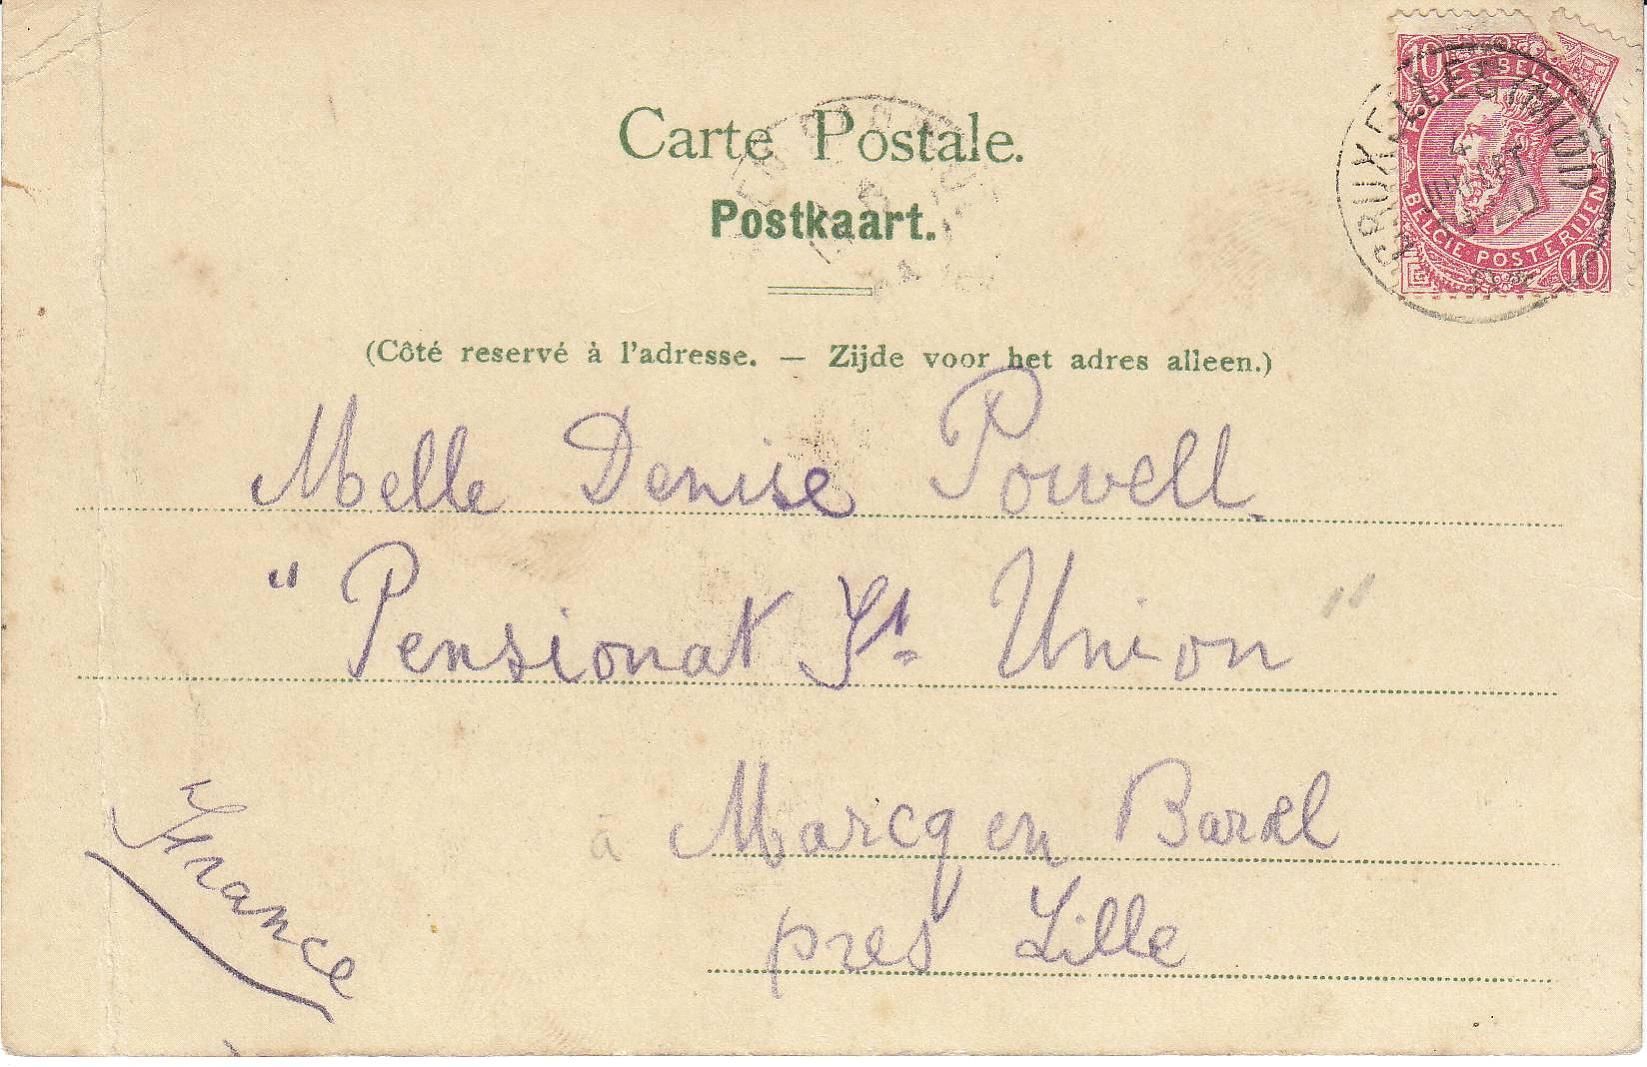 Carte Postale.
Postkaart.
(Côté reservé à l'adresse. — Zijde voor het adres alleen.)
10
POSTES BELGIQUE
BELGIE POSTERIJEN
10
BRUXELLES (MIDI)
4
Melle Denise Powell.
"Pensionat St. Union"
à Marcq en Barœl
pres Lille
France